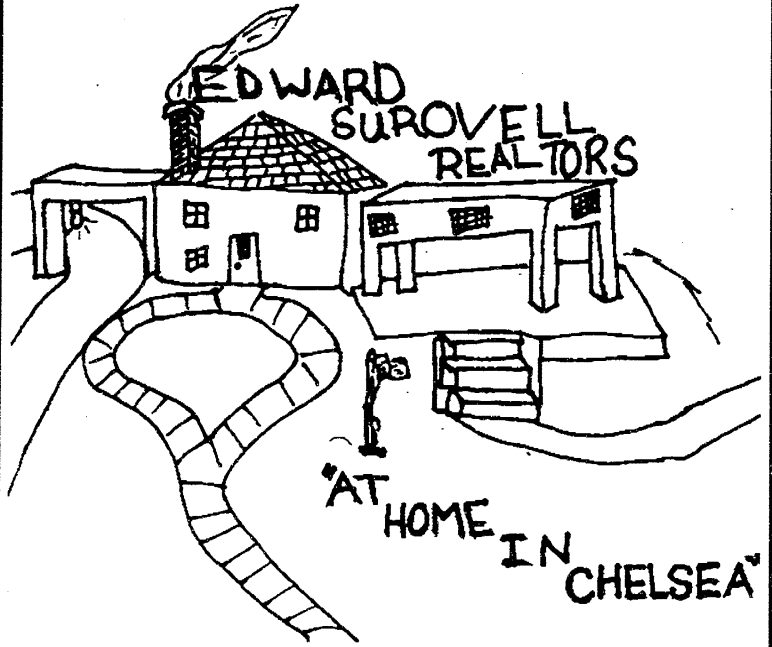 EDWARD
SUROVELL
REALTORS
"AT
HOME
IN
CHELSEA"